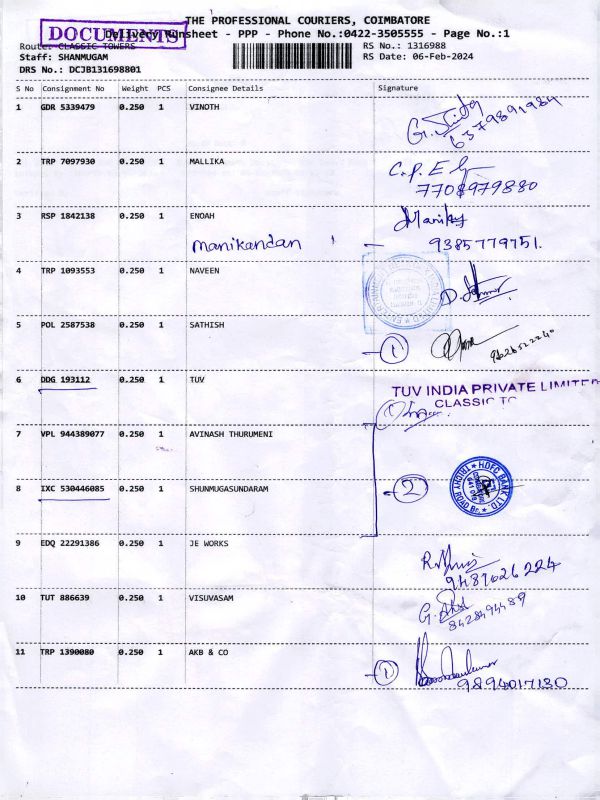 THE PROFESSIONAL COURIERS, COIMBATORE
DOCUMENTS
Delivery Runsheet - PPP - Phone No.:0422-3505555 - Page No.:1
Route: CLASSIC TOWERS
RS No.: 1316988
Staff: SHANMUGAM
RS Date: 06-Feb-2024
DRS No.: DCJB131698801
S No Consignment No Weight PCS Consignee Details Signature
1 GDR 5339479 0.250 1 VINOTH
6379891984
2 TRP 7097930 0.250 1 MALLIKA
7708979880
3 RSP 1842138 0.250 1 ENOAH
manikandan
9385779751.
4 TRP 1093553 0.250 1 NAVEEN
5 POL 2587538 0.250 1 SATHISH
1
6 DDG 193112 0.250 1 TUV
TUV INDIA PRIVATE LIMITED
CLASSIC TO
7 VPL 944389077 0.250 1 AVINASH THURUMENI
8 IXC 530446085 0.250 1 SHUNMUGASUNDARAM
2
HDFC BANK LTD.
TRICHY ROAD BR.
9 EDQ 22291386 0.250 1 JE WORKS
9487626224
10 TUT 886639 0.250 1 VISUVASAM
8428494489
11 TRP 1390080 0.250 1 AKB & CO
1
9894017130